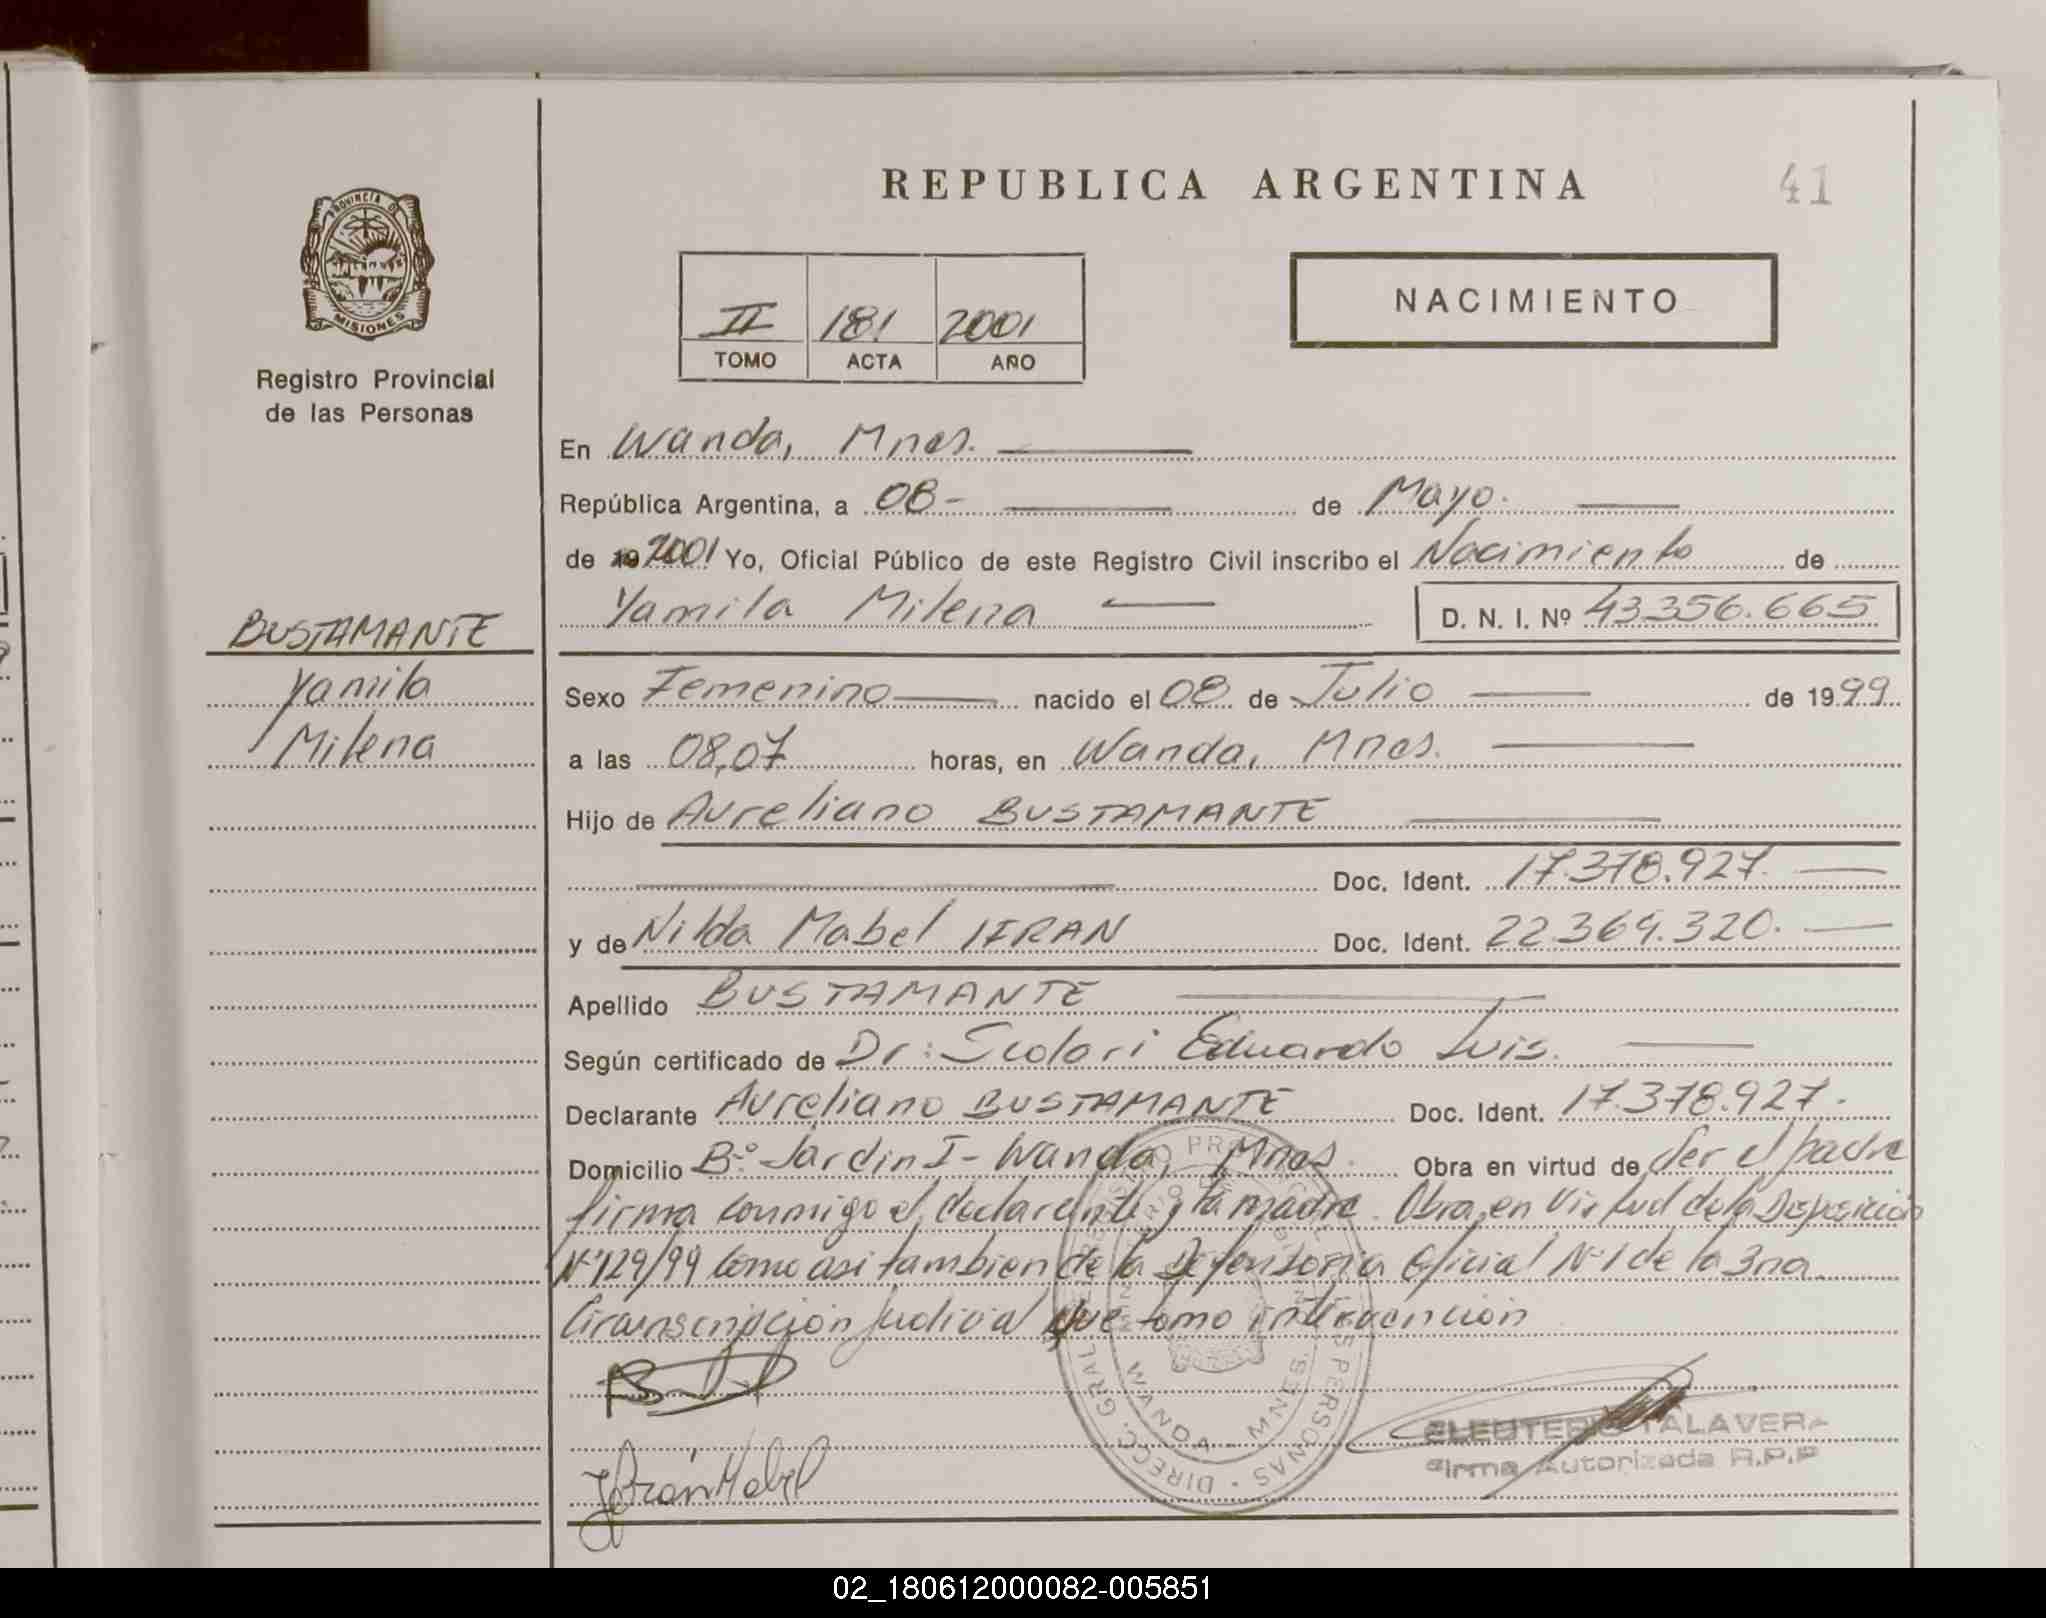 REPUBLICA ARGENTINA
41
PROVINCIA DE
MISIONES
Registro Provincial
de las Personas
II 181 2001
TOMO ACTA AÑO
NACIMIENTO
En Wanda, Mnes.
República Argentina, a 08- de Mayo.
de 19 2001 Yo, Oficial Público de este Registro Civil inscribo el Nacimiento de
Yamila Milena D. N. I. Nº 43.356.665
BUSTAMANTE
Yamila
Milena
Sexo Femenino nacido el 08 de Julio de 1999
a las 08,07 horas, en Wanda, Mnes.
Hijo de Aureliano BUSTAMANTE
Doc. Ident. 17.378.927.
y de Nilda Mabel IFRAN Doc. Ident. 22.369.320.
Apellido BUSTAMANTE
Según certificado de Dr: Scolari Eduardo Luis.
Declarante Aureliano BUSTAMANTE Doc. Ident. 17.378.927.
Domicilio Bº Jardin I - Wanda, Mnes. Obra en virtud de Ser el padre
firma conmigo el declarante y la madre. Obra en Virtud de la Disposición
Nº 129/99 como asi tambien de la Defensoria Oficial Nº 1 de la 3ra
Circunscripción Judicial que tomo intervención
DIRECC. GRAL. PERSONAS
WANDA - MNES.
Ifrán Mabel
ELEUTERIO TALAVERA
Firma Autorizada R.P.P
02_180612000082-005851